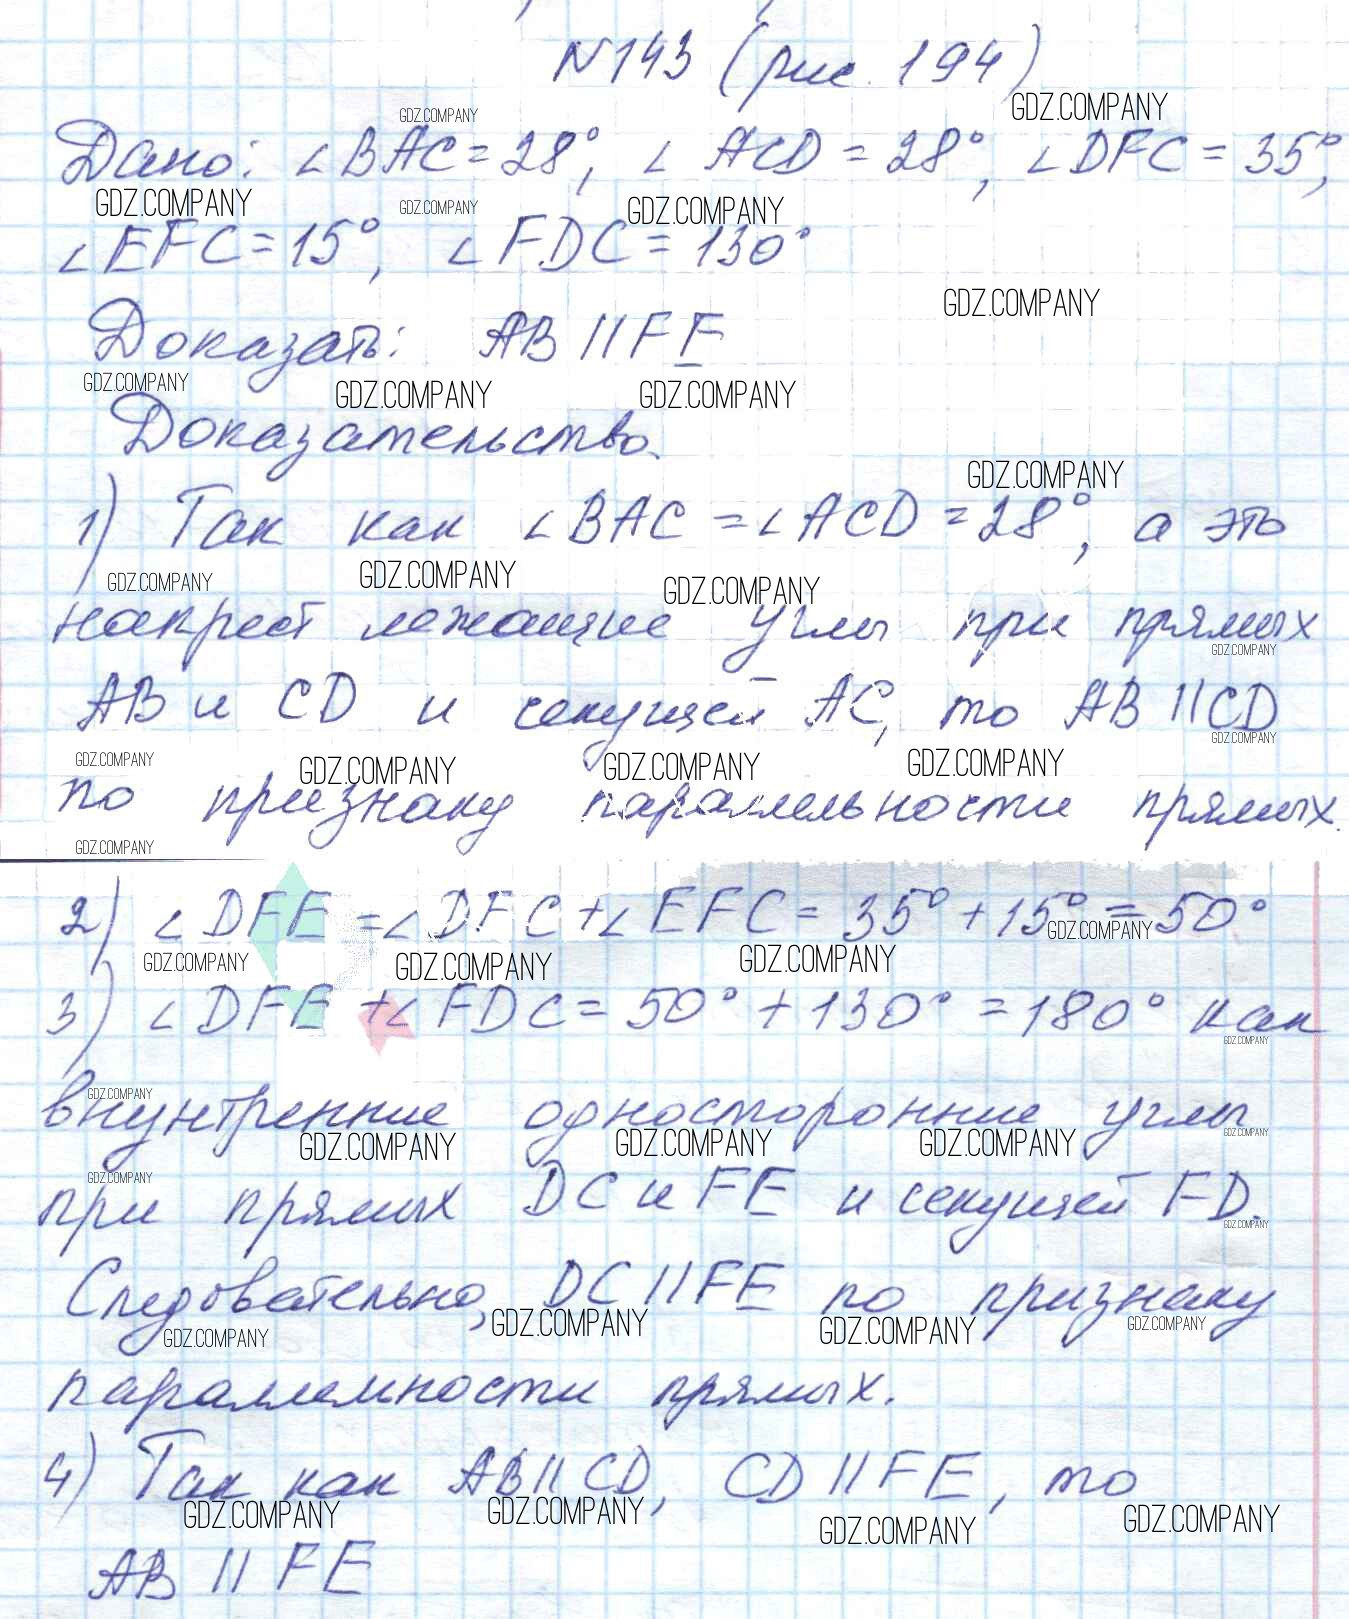 N143 (рис. 194)
GDZ.COMPANY GDZ.COMPANY
Дано: ∠BAC = 28°, ∠ACD = 28°, ∠DFC = 35°,
GDZ.COMPANY GDZ.COMPANY GDZ.COMPANY
∠EFC = 15°, ∠FDC = 130°
GDZ.COMPANY
Доказать: AB || FE
GDZ.COMPANY GDZ.COMPANY GDZ.COMPANY
Доказательство.
GDZ.COMPANY
1) Так как ∠BAC = ∠ACD = 28°, а это
GDZ.COMPANY GDZ.COMPANY GDZ.COMPANY
накрест лежащие углы при прямых
GDZ.COMPANY
AB и CD и секущей AC, то AB || CD
GDZ.COMPANY
GDZ.COMPANY GDZ.COMPANY GDZ.COMPANY GDZ.COMPANY
по признаку параллельности прямых.
GDZ.COMPANY
2) ∠DFE = ∠DFC + ∠EFC = 35° + 15° = 50°
GDZ.COMPANY
GDZ.COMPANY GDZ.COMPANY GDZ.COMPANY
3) ∠DFE + ∠FDC = 50° + 130° = 180° как
GDZ.COMPANY
GDZ.COMPANY
внутренние односторонние углы
GDZ.COMPANY GDZ.COMPANY GDZ.COMPANY GDZ.COMPANY
GDZ.COMPANY
при прямых DC и FE и секущей FD.
GDZ.COMPANY
Следовательно, DC || FE по признаку
GDZ.COMPANY GDZ.COMPANY GDZ.COMPANY GDZ.COMPANY
параллельности прямых.
4) Так как AB || CD, CD || FE, то
GDZ.COMPANY GDZ.COMPANY GDZ.COMPANY GDZ.COMPANY
AB || FE